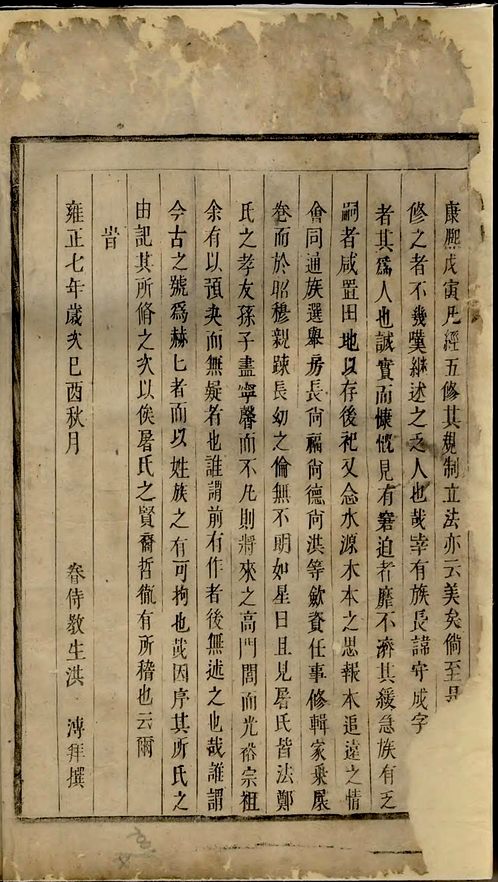 康熙戊寅凡經五修其規制立法亦云美矣倘至是
修之者不幾嘆継述之乏人也哉幸有族長諱守成字
者其為人也誠實而慷慨見有窘迫者靡不濟其緩急族有乏
嗣者咸置田地以存後祀又念水源木本之思報本追遠之情
會同通族選舉房長尚福尚德尚洪等歛資任事修輯家乗展
卷而於昭穆親踈長幼之倫無不明如星日且見屠氏皆法鄭
氏之孝友孫子盡寧馨而不凡則將來之高門閭而光裕宗祖
余有以預决而無疑者也誰謂前有作者後無述之也哉誰謂
今古之號為赫匕者而以姓族之有可拘也哉因序其所氏之
由記其所脩之次以俟屠氏之賢裔哲胤有所稽也云爾
旹
雍正七年歲次巳酉秋月 眷侍教生洪 溥拜撰